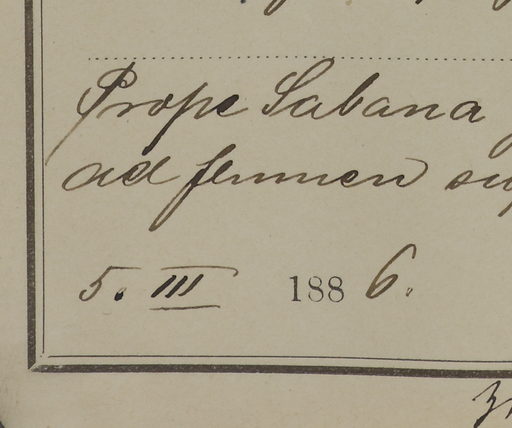 Prope Sabana
ad flumen
5. III 1886.